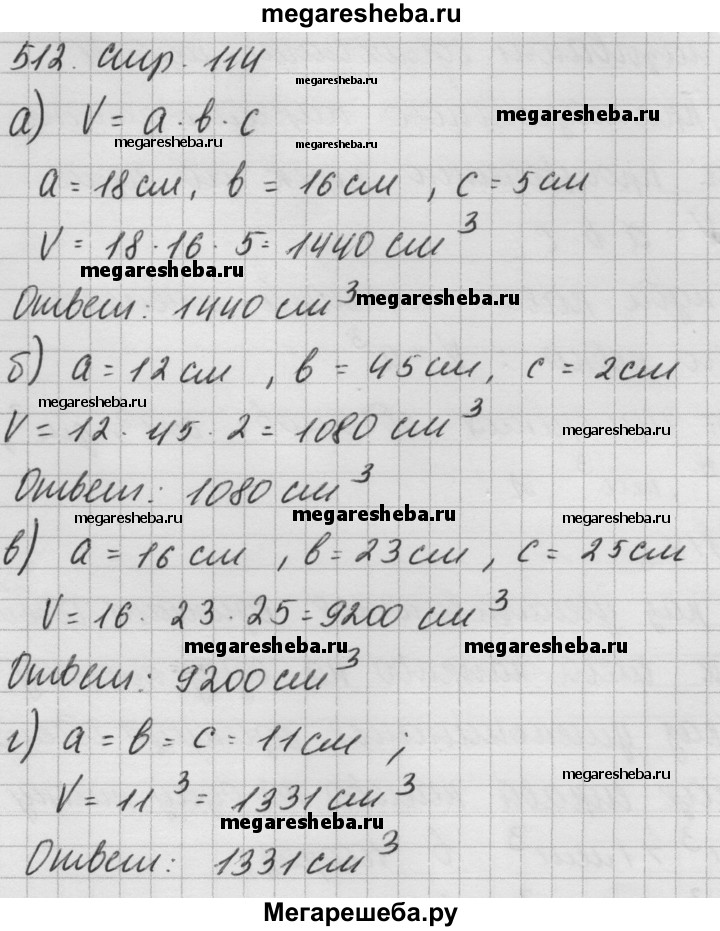 megaresheba.ru
512. стр. 114
megaresheba.ru
а) V = а · в · с
megaresheba.ru
megaresheba.ru megaresheba.ru
а = 18 см, в = 16 см , с = 5 см
V = 18 · 16 · 5 = 1440 см³
megaresheba.ru
Ответ: 1440 см³
megaresheba.ru
б) а = 12 см , в = 45 см, с = 2 см
megaresheba.ru
V = 12 · 45 · 2 = 1080 см³
megaresheba.ru
Ответ: 1080 см³
megaresheba.ru megaresheba.ru megaresheba.ru
в) а = 16 см , в = 23 см , с = 25 см
V = 16 · 23 · 25 = 9200 см³
megaresheba.ru megaresheba.ru
Ответ: 9200 см³
г) а = в = с = 11 см ;
megaresheba.ru
V = 11³ = 1331 см³
megaresheba.ru
Ответ: 1331 см³
Мегарешеба.ру